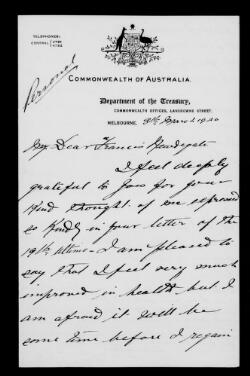 TELEPHONES:
CENTRAL
Personal
COMMONWEALTH OF AUSTRALIA.
Department of the Treasury,
COMMONWEALTH OFFICES, LANSDOWNE STREET,
MELBOURNE, 1920
My Dear Francis Newdegate
I feel deeply
grateful to you for your
kind thought of me expressed
so kindly in your letter of the
19th ultimo. I am pleased to
say that I feel very much
improved in health but I
am afraid it will be
some time before I regain